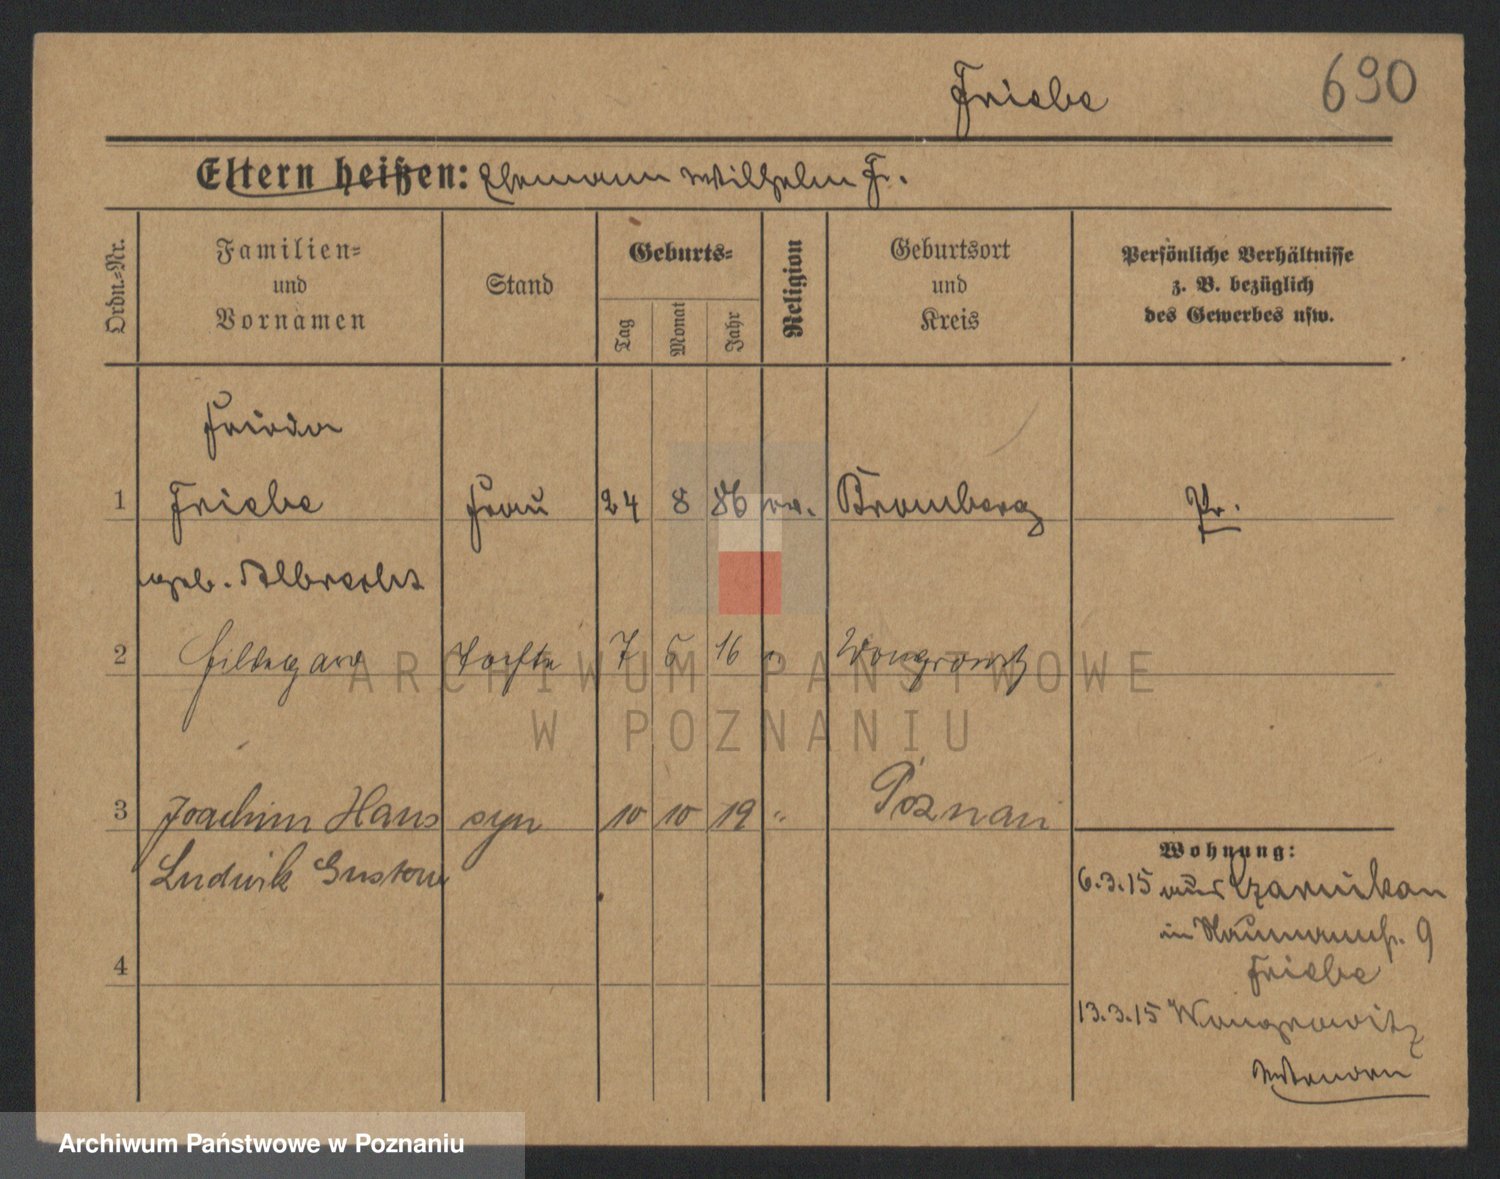 Friebe 690
Eltern heißen: Ehemann Wilhelm F.
Ordn.-Nr.
Familien-
und
Vornamen
Stand
Geburts-
Tag
Monat
Jahr
Religion
Geburtsort
und
Kreis
Persönliche Verhältnisse
z. B. bezüglich
des Gewerbes usw.
Frieda
1 Friebe Frau 24 8 86 ev. Bromberg Pr.
geb. Albrecht
2 Hildegard Tochter 7 5 16 " Wongrowitz
3 Joachim Hans syn 10 10 19 " Poznań
Ludwik Gustaw
4
Wohnung:
6.3.15 aus Czarnikau
in Naumannstr. 9
Friebe
13.3.15 Wongrowitz
ARCHIWUM PAŃSTWOWE
W POZNANIU
Archiwum Państwowe w Poznaniu